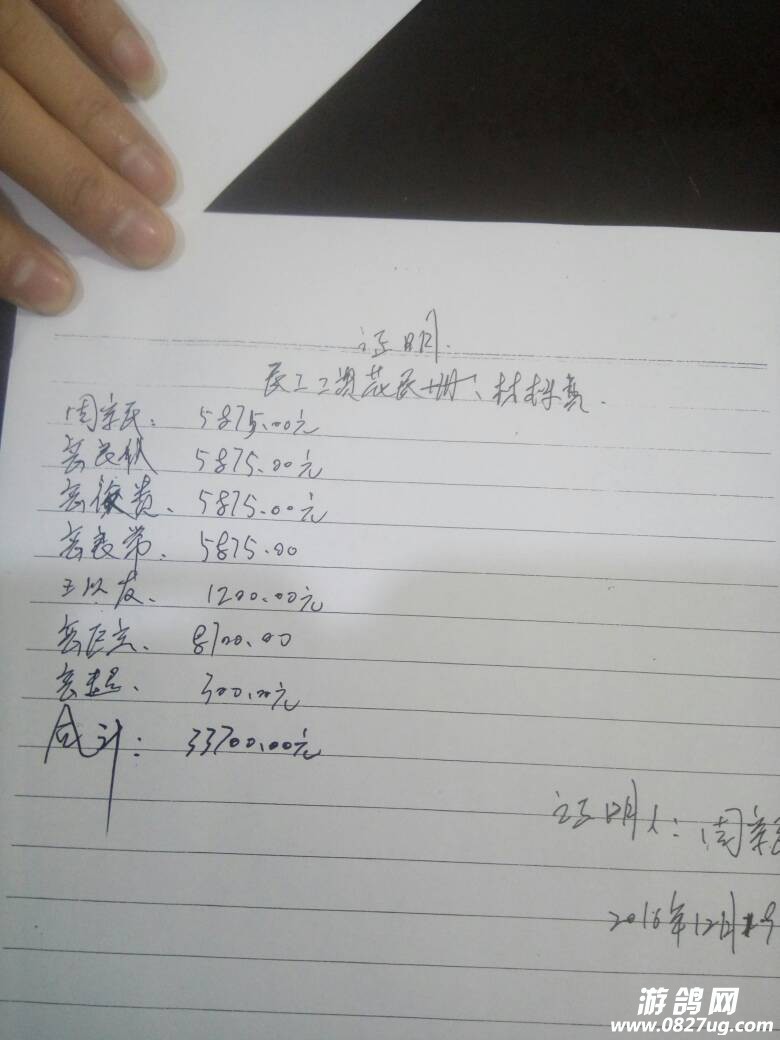 证明.
民工工资花名册、材料费.
周宗民: 5875.00元
5875.00元
贵. 5875.00元
5875.00
王以发. 1200.00元
8700.00
300.00元
合计: 33700.00元
证明人: 周宗
2016年12月
游鸽网
www.0827ug.com